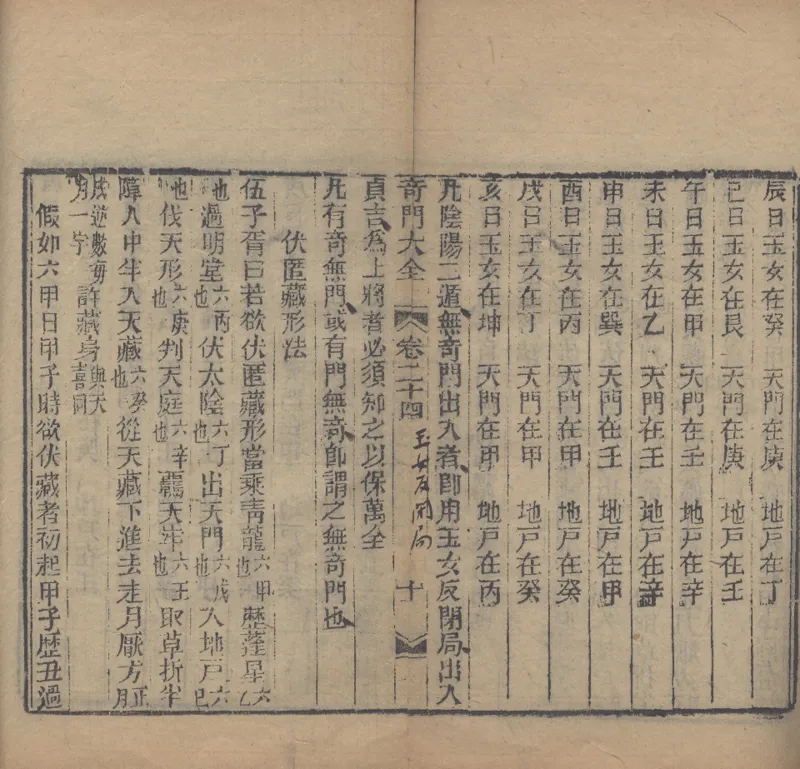 辰日玉女在癸　天門在庚　地戸在丁
巳日玉女在艮　天門在庚　地戸在壬
午日玉女在甲　天門在壬　地戸在辛
未日玉女在乙　天門在王　地戸在辛
申日玉女在巽　天門在壬　地戸在甲
酉日玉女在丙　天門在甲　地戸在癸
戌日玉女在丁　天門在甲　地戸在癸
亥日玉女在坤　天門在甲　地戸在丙
凡陰陽二遁無奇門出入者即用玉女反閉局出入
奇門大全　卷二十四　玉女反閉局　十
貞吉為上將者必須知之以保萬全
凡有奇無門或有門無奇即謂之無奇門也
伏匿藏形法
伍子胥曰若欲伏匿藏形當乘青龍六甲也歷蓬星六乙
也過明堂六丙也伏太陰六丁也出天門六戊也入地戸六己
也伐天形六庚也判天庭六辛也天牢六壬也取草折半
障人中半入天藏六癸也從天藏下進去走月厭方正月
戌逆數每月一字許藏身與天同
假如六甲日甲子時欲伏藏者初起甲子歷丑過